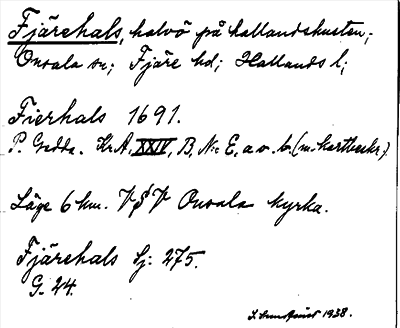 Fjärehals, halvö på hallandskusten;
Onsala sn; Fjäre hd; Hallands l;
Fierhals 1691.
P. Gedda. Kr.A. XXIV, B, N:r E, a o. b. (m. kartbeskr.).
Läge 6 km. VSV Onsala kyrka.
Fjärehals Sj: 275.
G. 24.
1928.